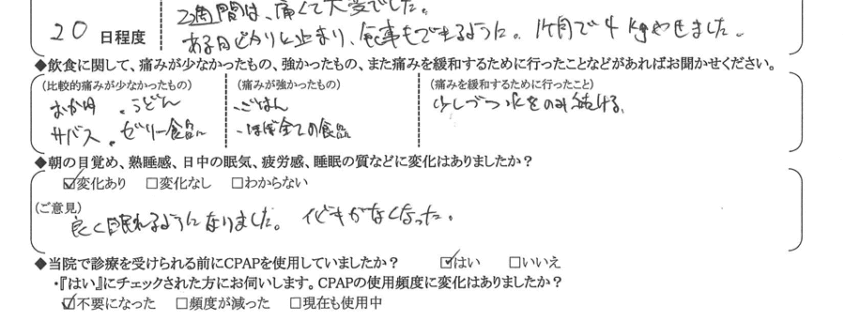 2週間は、痛くて大変でした。
20 日程度
ある日ピタリと止まり、食事もできるように。1ヶ月で4kgやせました。
◆飲食に関して、痛みが少なかったもの、強かったもの、また痛みを緩和するために行ったことなどがあればお聞かせください。
(比較的痛みが少なかったもの) (痛みが強かったもの) (痛みを緩和するために行ったこと)
おかゆ ・うどん ・ごはん 少しづつ水をのみ続ける。
サバス ・ゼリー食品 ・ほぼ全ての食品
◆朝の目覚め、熟睡感、日中の眠気、疲労感、睡眠の質などに変化はありましたか?
☑変化あり □変化なし □わからない
(ご意見)
良く眠れるようになりました。イビキがなくなった。
◆当院で診療を受けられる前にCPAPを使用していましたか? ☑はい □いいえ
・『はい』にチェックされた方にお伺いします。CPAPの使用頻度に変化はありましたか?
☑不要になった □頻度が減った □現在も使用中